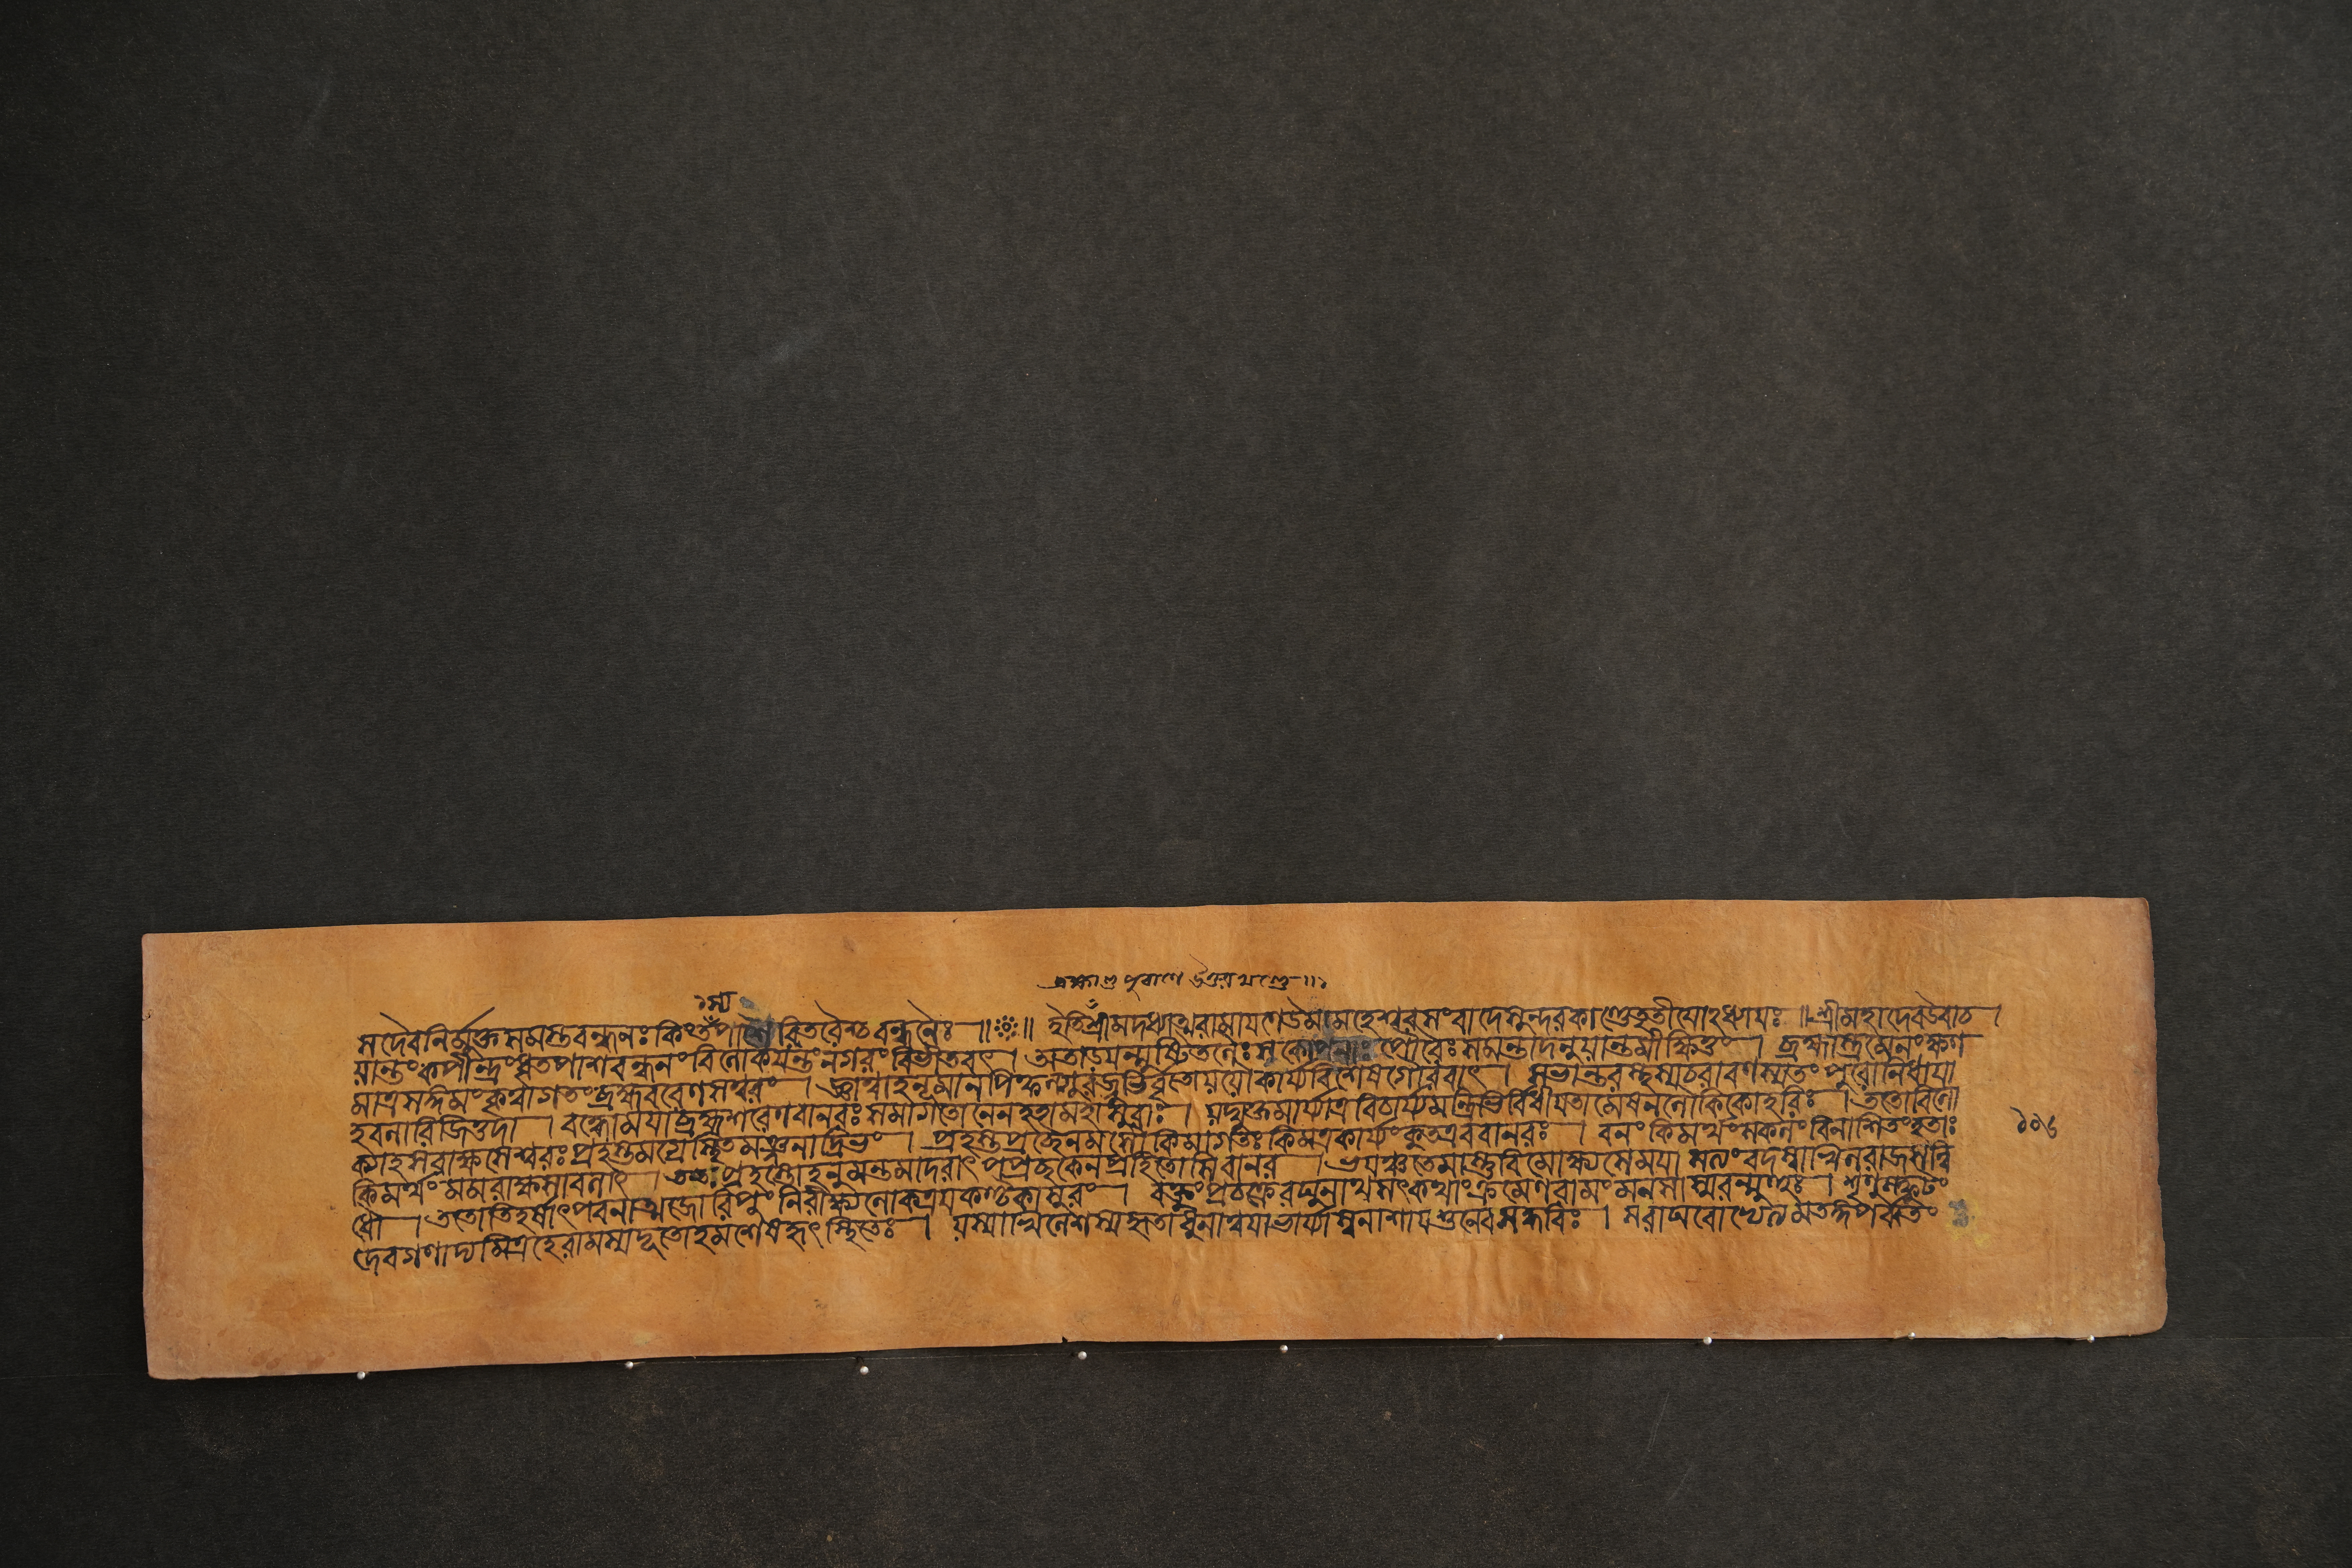 ব্রহ্মাণ্ডপুরাণে উত্তরখণ্ডে ॥
স্য
সদৈবনির্মুক্তসমস্তবন্ধনঃ কিং তস্য পাশৈরিতরৈশ্চ বন্ধনৈঃ ॥ ॥ ইতিশ্রীমদধ্যাত্মরামায়ণেউমামহেশ্বরসংবাদেসুন্দরকাণ্ডেতৃতীযোঽধ্যাযঃ ॥ শ্রীমহাদেবউবাচ ।
য়ান্তংকপীন্দ্রংধৃতপাশবন্ধনং বিলোকযন্তংনগরংবিভীতবৎ । অতাড়যন্মুষ্টিতলৈঃসুকোপনাঃ পৌরাঃসমন্তাদনুয়ান্তমীক্ষিতুং । ব্রহ্মাস্ত্রমেনংক্ষণ
মাত্রসঙ্গমংকৃত্বাগতংব্রহ্মবরেণসত্বরং । জ্ঞাত্বাহনূমানপিফল্গুরজ্জুভির্বৃতোয়য়ৌকার্য্যবিশেষগৌরবাৎ । সভান্তরস্থস্যচরাবণস্যতং পুরোনিধাযা
হবলারিজিত্তদা । বদ্ধোমযাব্রহ্মশরেণবানরঃ সমাগতোনেনহতামহাসুরাঃ । য়দ্যুক্তমার্য্যাত্রবিচার্য্যমন্ত্রিভির্বিধীযতামেষনলৌকিকোহরিঃ । ততোবিলো
ক্যাহসরাক্ষসেশ্বরঃ প্রহস্তমগ্রেস্থিতমঞ্জনাদ্রিভং । প্রহস্তপৃচ্ছৈনমসৌকিমাগতঃ কিমত্রকার্য্যংকুতএববানরঃ । বনংকিমর্থংসকলংবিনাশিতংহতাঃ
কিমর্থংমমরাক্ষসাবলাৎ । ততঃপ্রহস্তোহনুমন্তমাদরাৎ পপ্রচ্ছকেনপ্রহিতোসিবানর । ভযঞ্চতেমাস্তুবিমোক্ষ্যসেমযা সত্যংবদস্বাখিলরাজসন্নি
ধৌ । ততোতিহর্ষাৎপবনাত্মজোরিপুং নিরীক্ষ্যলোকত্রযকণ্টকাসুরং । বক্তুংপ্রচক্রেরঘুনাথসৎকথাংক্রমেণরামংমনসাস্মরন্মুহুঃ । শৃণুস্ফুটং
দেবগণাদ্যমিত্রহেরামস্যদূতোহমশেষহৃৎস্থিতেঃ । য়স্যাখিলেশস্যহৃতাধুনাত্বযাভার্য্যাস্বনাশাযশুনেবসদ্ধবিঃ । সরাঘবোভ্যেত্যমতঙ্গপর্বতং
১০৬